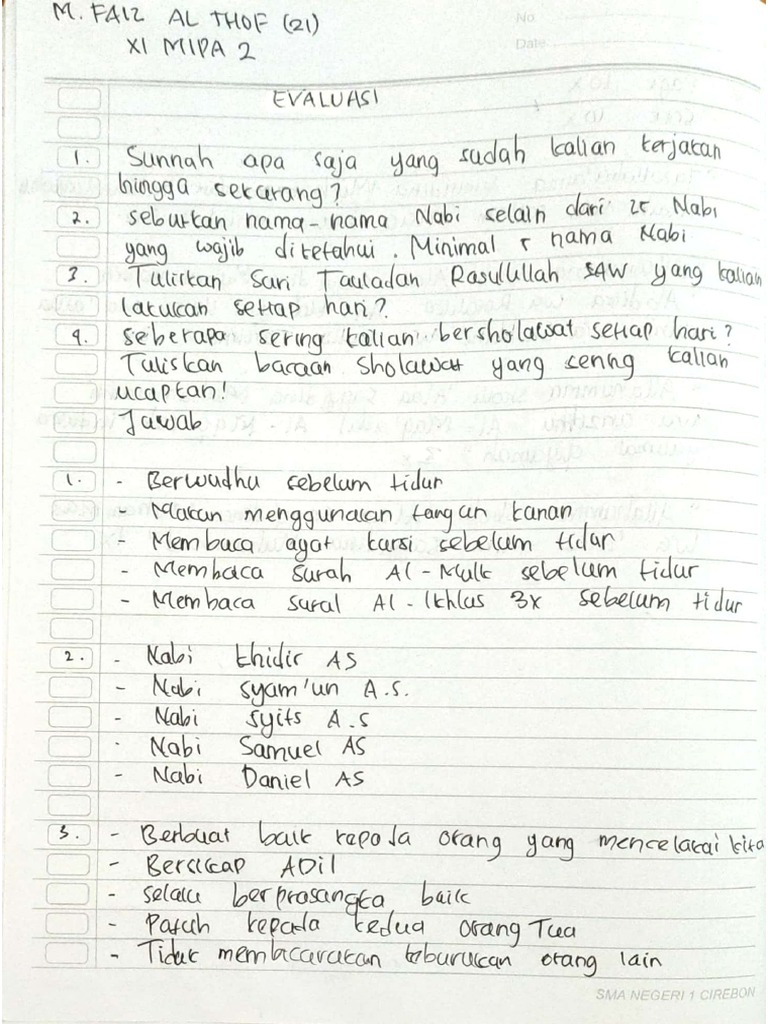 M. FAIZ AL THOF (21)
No
XI MIPA 2
Date
EVALUASI
1. Sunnah apa saja yang sudah kalian kerjakan
hingga sekarang?
2. seburkan nama-nama Nabi selain dari 25 Nabi
yang wajib diketahui. Minimal 5 nama Nabi
3. Tuliskan Sari Tauladan Rasulullah SAW yang kalian
lakukan setiap hari?
4. seberapa sering kalian bersholawat setiap hari?
Tuliskan bacaan sholawat yang sering kalian
ucapkan!
Jawab
1. - Berwudhu sebelum tidur
- Makan menggunakan tangan kanan
- Membaca ayat kursi sebelum tidur
- Membaca surah Al-Mulk sebelum tidur
- Membaca surat Al-Ikhlas 3x sebelum tidur
2. - Nabi khidir AS
- Nabi syam'un A.S.
- Nabi syits A.S
- Nabi Samuel AS
- Nabi Daniel AS
3. - Berbuat baik kepada orang yang mencelakai kita
- Bersikap ADil
- selalu berprasangka baik
- Patuh kepada kedua orang Tua
- Tidak membicarakan keburukan orang lain
SMA NEGERI 1 CIREBON